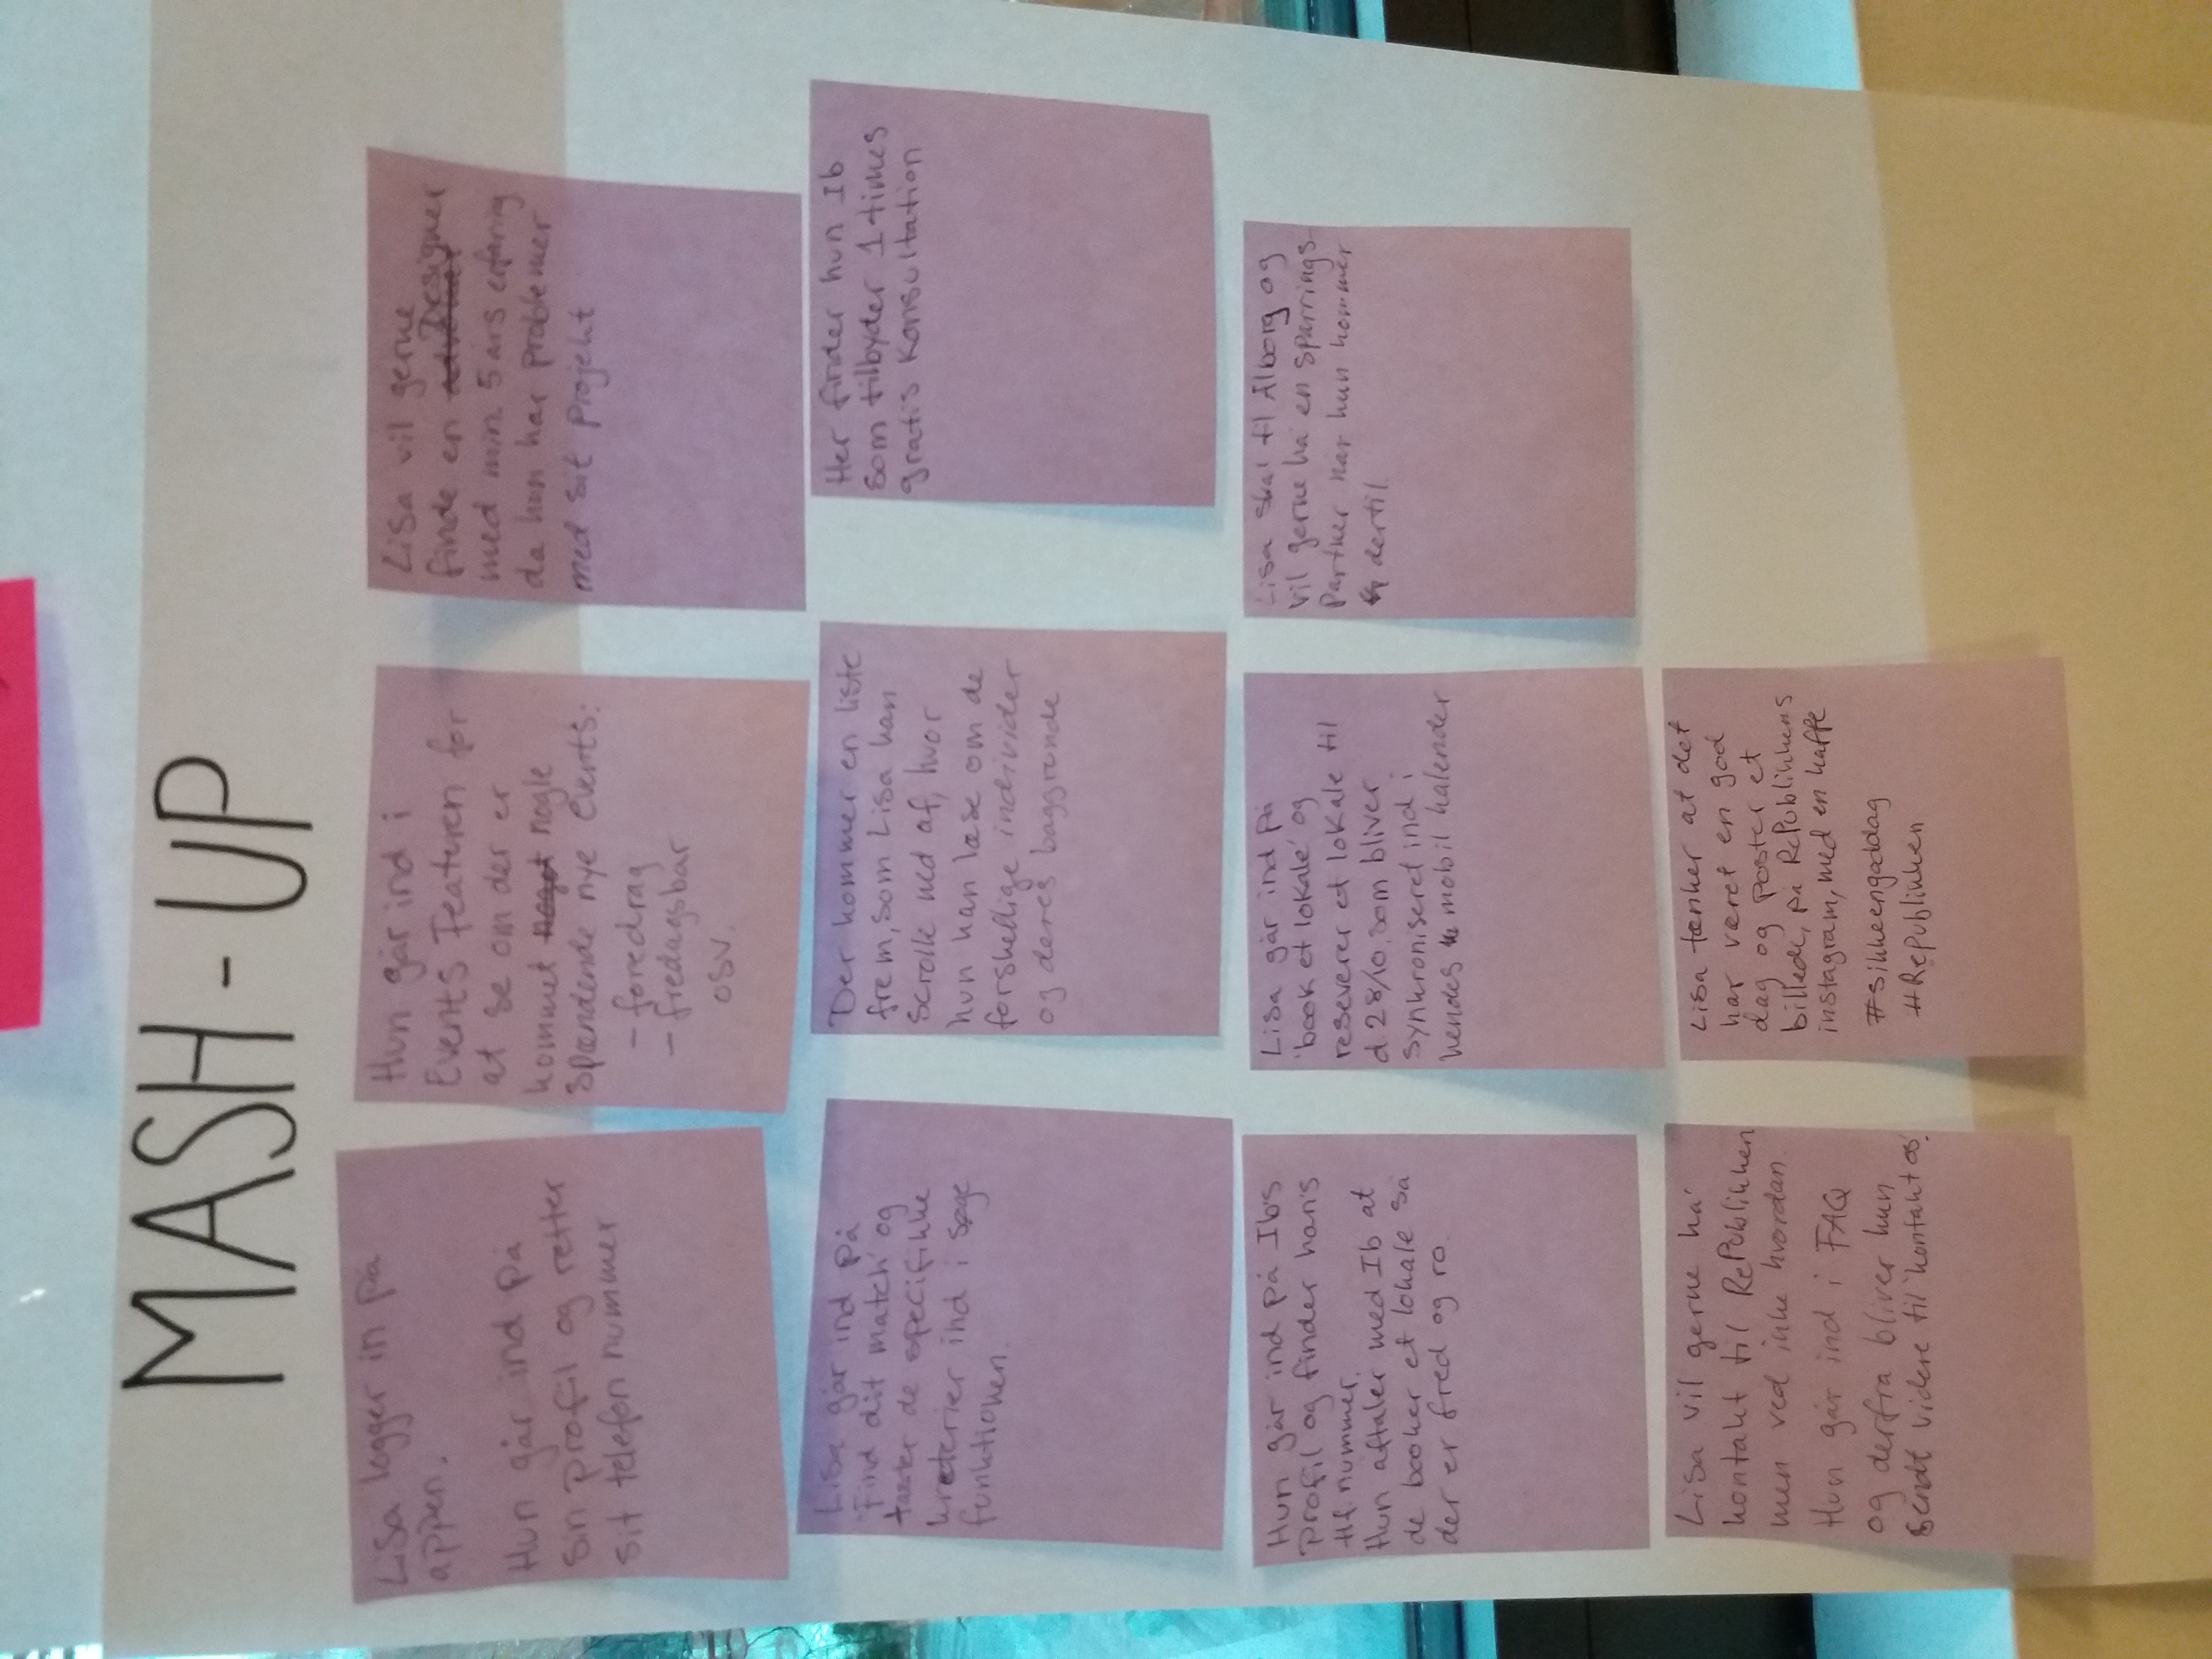 MASH-UP
Lisa logger in på
appen.
Hun går ind på
sin profil og retter
sit telefon nummer
Hun går ind i
Events Featuren for
at se om der er
kommet noget nogle
spændende nye events:
- foredrag
- fredagsbar
osv.
Lisa vil gerne
finde en advokat Designer
med min. 5 års erfaring
da hun har problemer
med sit projekt
Lisa går ind på
'Find dit match' og
taster de specifikke
kreterier ind i søge
funktionen.
Der kommer en liste
frem, som Lisa kan
scrolle ned af, hvor
hun kan læse om de
forskellige individer
og deres baggrunde
Her finder hun Ib
som tilbyder 1 times
gratis konsultation
Hun går ind på Ib's
profil og finder han's
tlf. nummer.
Hun aftaler med Ib at
de booker et lokale så
der er fred og ro.
Lisa går ind på
'book et lokale' og
reseverer et lokale til
d 28/10, som bliver
synkroniseret ind i
hendes mobil kalender
Lisa skal til Ålborg og
vil gerne ha' en sparrings-
partner når hun kommer
dertil.
Lisa vil gerne ha'
kontakt til RePublikken
men ved ikke hvordan.
Hun går ind i FAQ
og derfra bliver hun
sendt videre til 'kontakt os'.
Lisa tænker at det
har været en god
dag og poster et
billede, på RePublikkens
instagram, med en kaffe
#sikkeengoddag
#Republikken